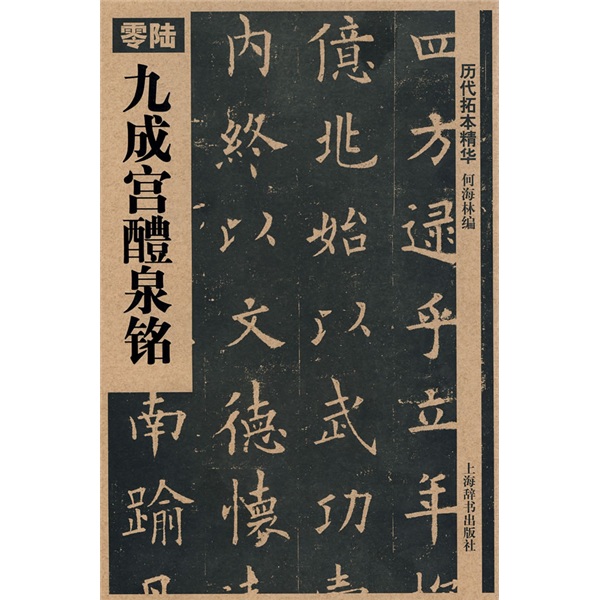 零陆
九成宫醴泉铭
历代拓本精华
何海林编
上海辞书出版社
四方逯乎立年
億兆始以武功
内終以文德懷
南踰